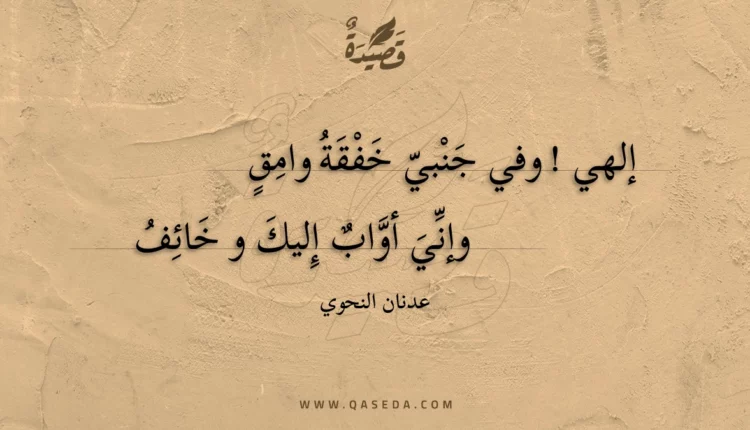 قَصِيدَةٌ
إلهي ! وفي جَنْبيّ خَفْقَةُ وامِقٍ
وإنِّيَ أوَّابٌ إِليكَ و خَائِفُ
عدنان النحوي
WWW.QASEDA.COM